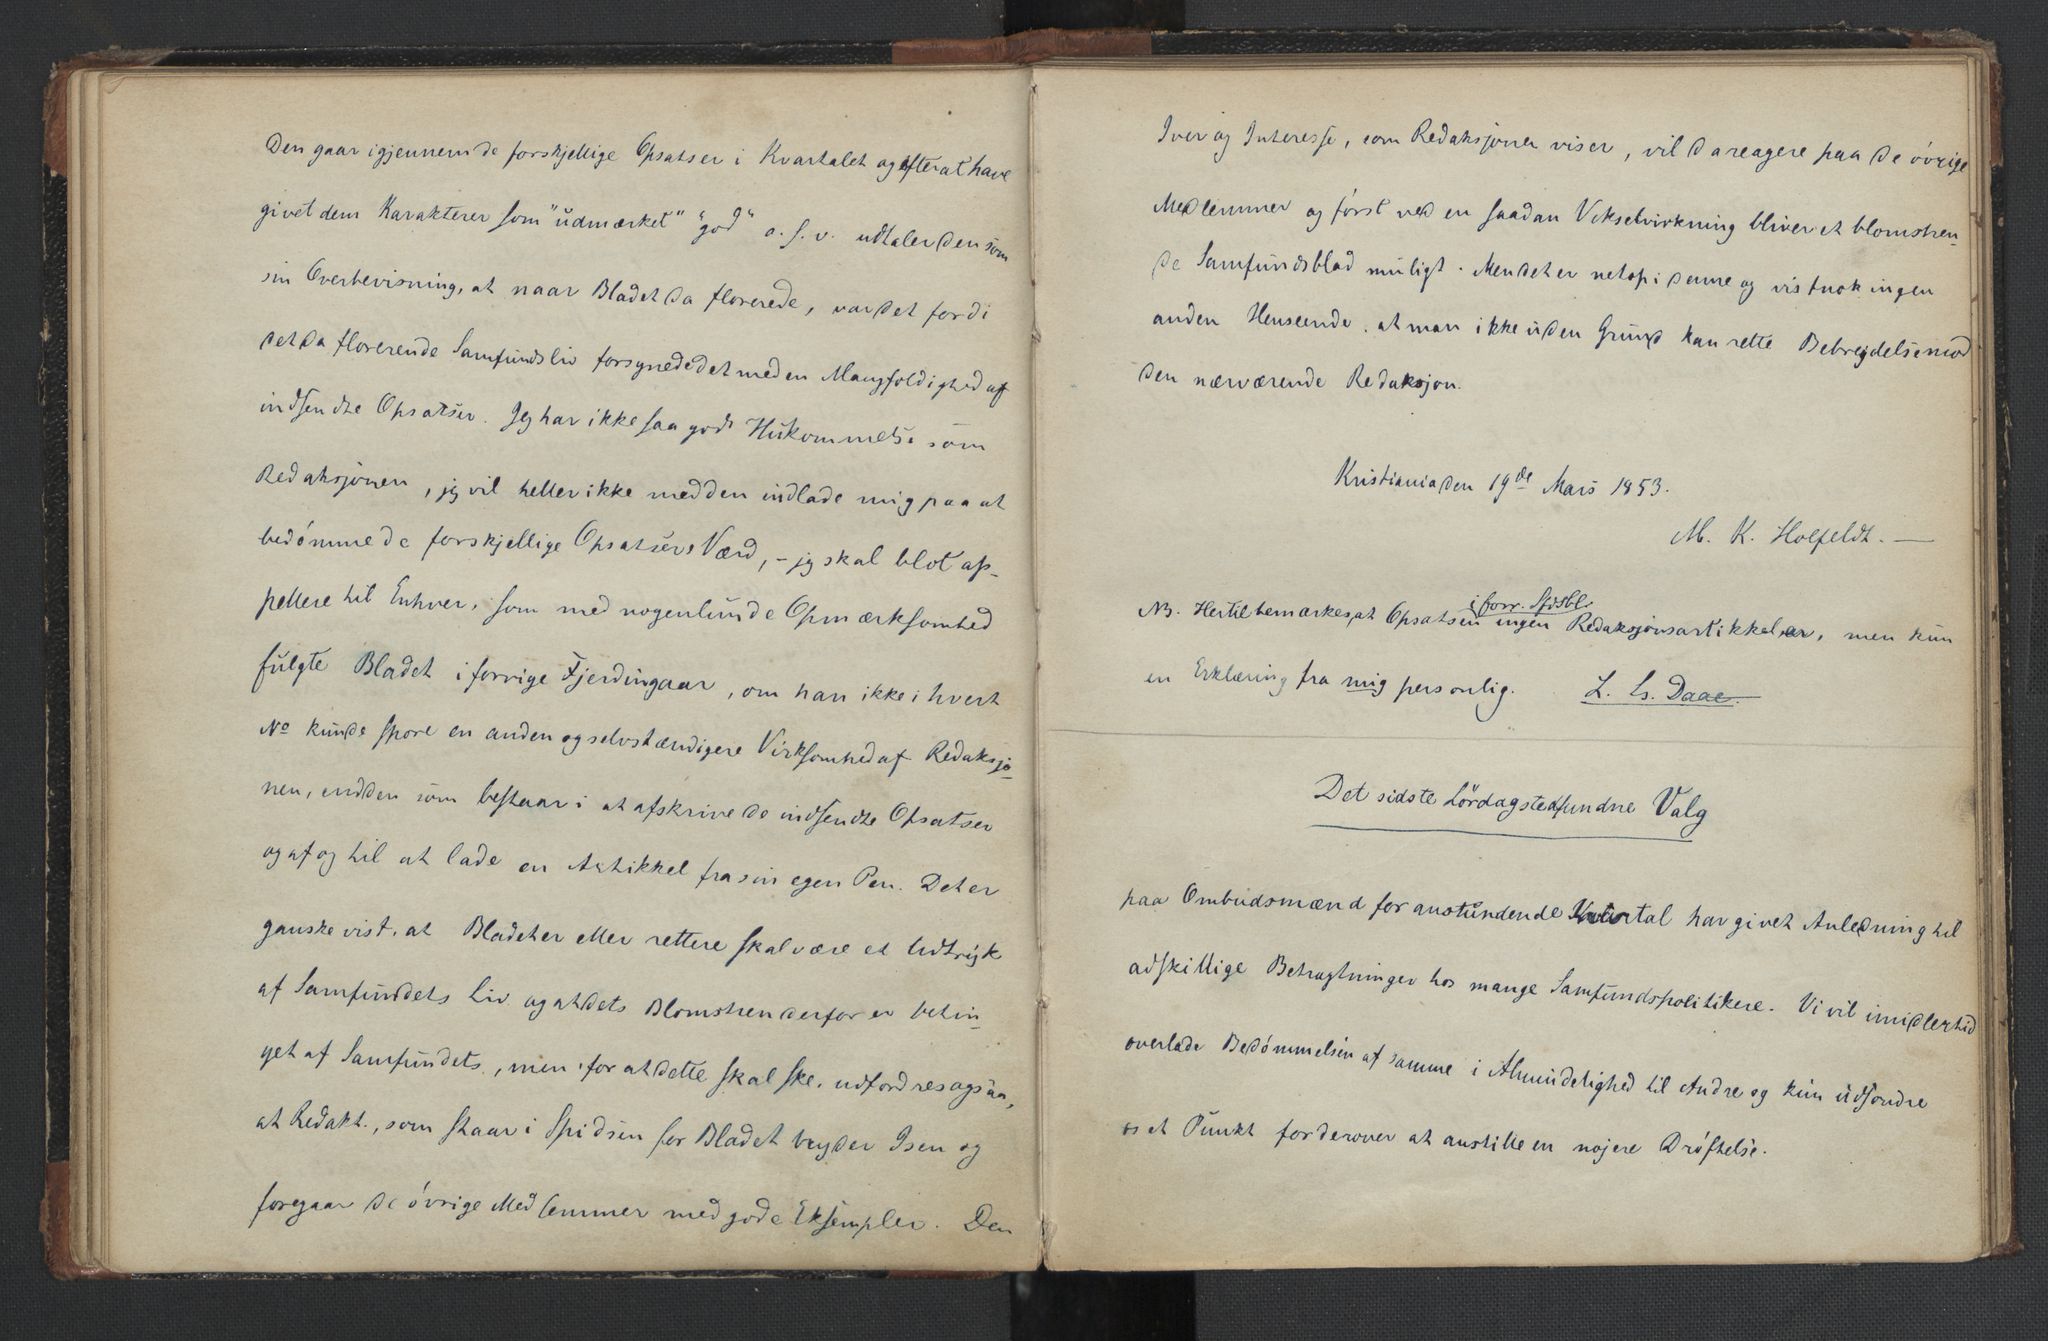 Den gaar igjennem de forskjellige Opsatser i Kvartalet og efter at have
givet dem Karakterer som "udmærket" "god" o. s. v. udtaler den som
sin Overbevisning, at naar Bladet da florerede, var det fordi
det da florerende Samfundsliv forsynede det med en Mangfoldighed af
indsendte Opsatser. Jeg har ikke saa god Hukommelse som
Redaksjonen, jeg vil heller ikke med den indlade mig paa at
bedømme de forskjellige Opsatsers Værd, - jeg skal blot ap-
pellere til Enhver, som med nogenlunde Opmærksomhed
fulgte Bladet i forrige Fjerdingaar, om han ikke i hvert
No kunde spore en anden og selvstændigere Virksomhed af Redaksjo-
nen, end den som bestaar i at afskrive de indsendte Opsatser
og af og til at lade en Artikkel fra sin egen Pen. Det er
ganske vist, at Bladet er eller rettere skal være et Udtryk
af Samfundets Liv og at dets Blomstren derfor er betin-
get af Samfundets, men for at dette skal ske, udfordres ogsaa,
at Redakt., som staar i Spidsen for Bladet bryder Isen og
foregaar de øvrige Medlemmer med gode Eksempler. Den
Iver og Interesse, som Redaksjonen viser, vil da reagere paa de øvrige
Medlemmer og først ved en saadan Vekselvirkning bliver et blomstren-
de Samfundsblad muligt. Men det er netop i denne og vistnok ingen
anden Henseende, at man ikke uden Grund kan rette Bebreidelse mod
den nærværende Redaksjon.
Kristiania den 19de Mars 1853.
M. K. Holfeldt. —
i forr. Sfdsbl.
NB. Hertil bemærkes, at Opsatsen ingen Redaksjonsartikkel er, men kun
en Erklæring fra mig personlig. L. Ls. Daae.
Det sidste Lördag stedfundne Valg
paa Ombudsmænd for anstundende Kvartal har givet Anledning til
adskillige Betragtninger hos mange Samfundspolitikere. Vi vil imidlertid
overlade Bedømmelsen af samme i Almindelighed til Andre og kun udsondre
os et Punkt for derover at anstille en nøjere Drøftelse.